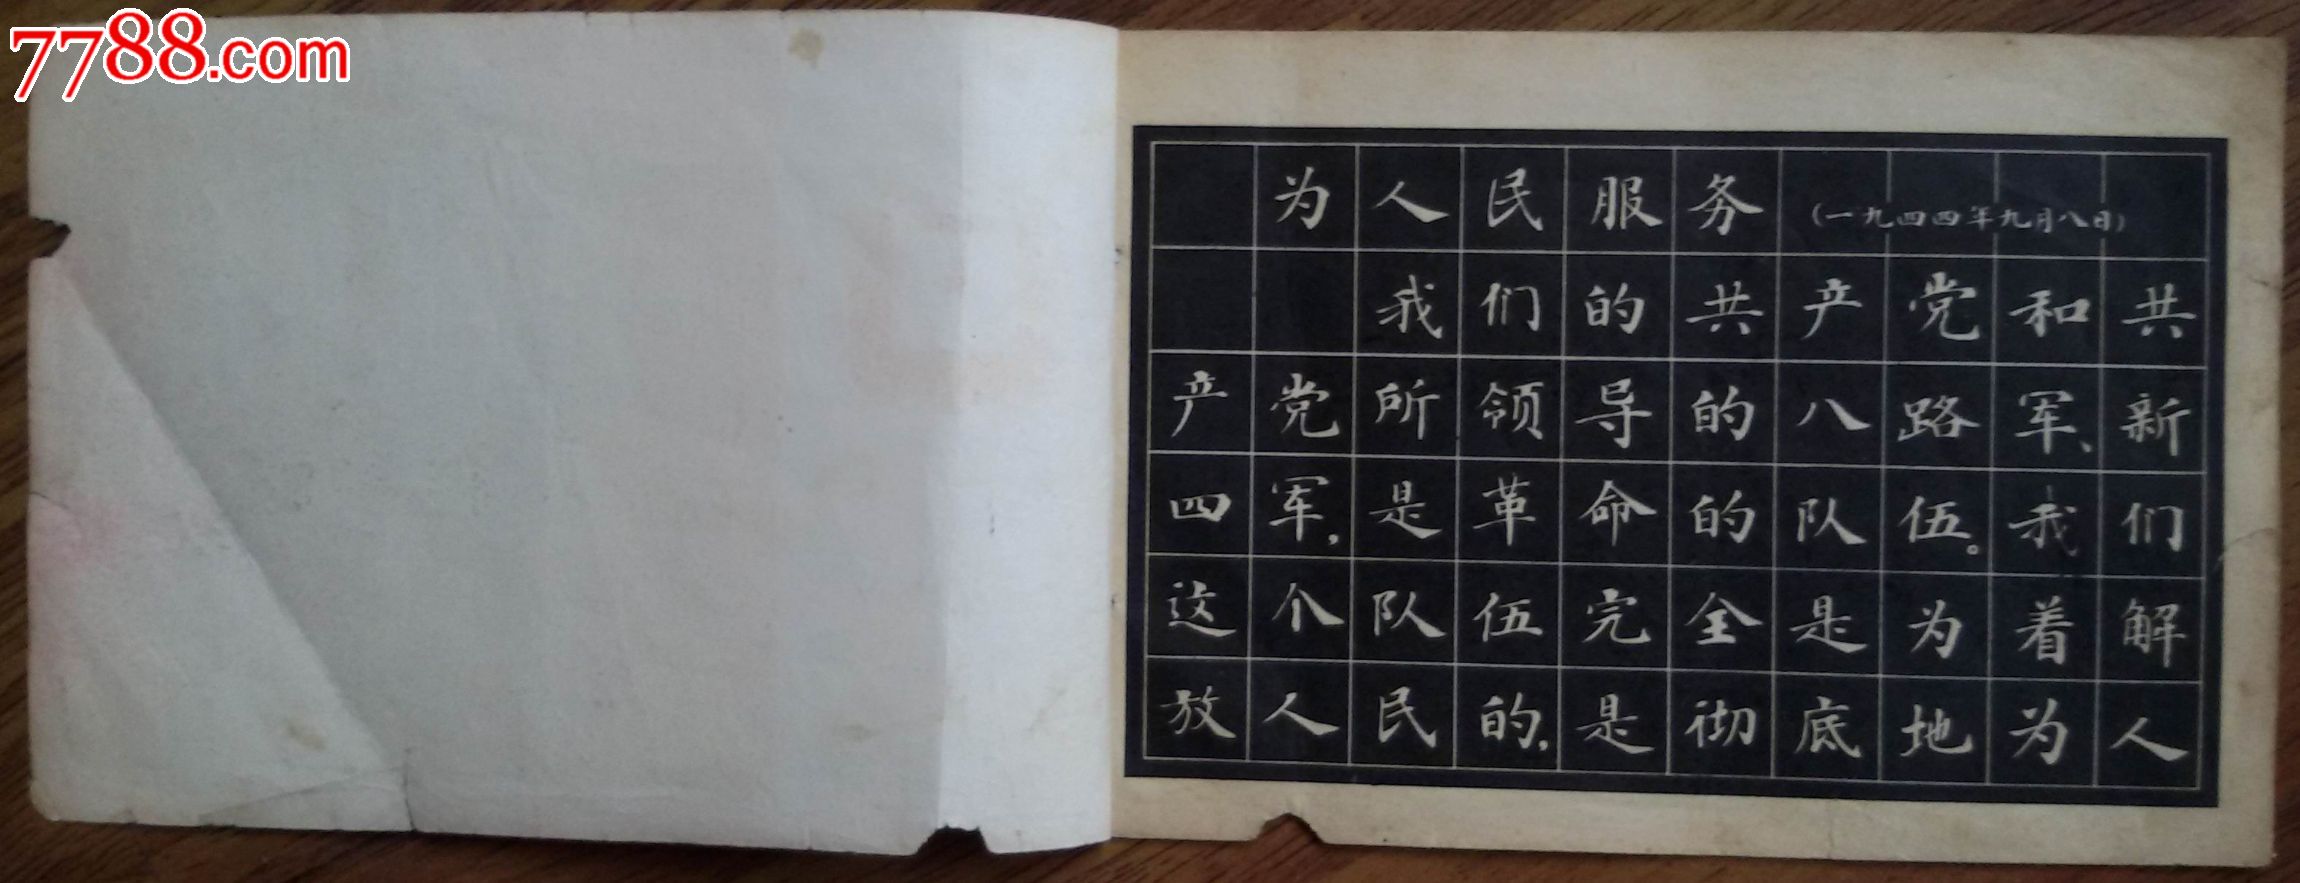 7788.com
为人民服务 (一九四四年九月八日)
我们的共产党和共
产党所领导的八路军、新
四军,是革命的队伍。我们
这个队伍完全是为着解
放人民的,是彻底地为人